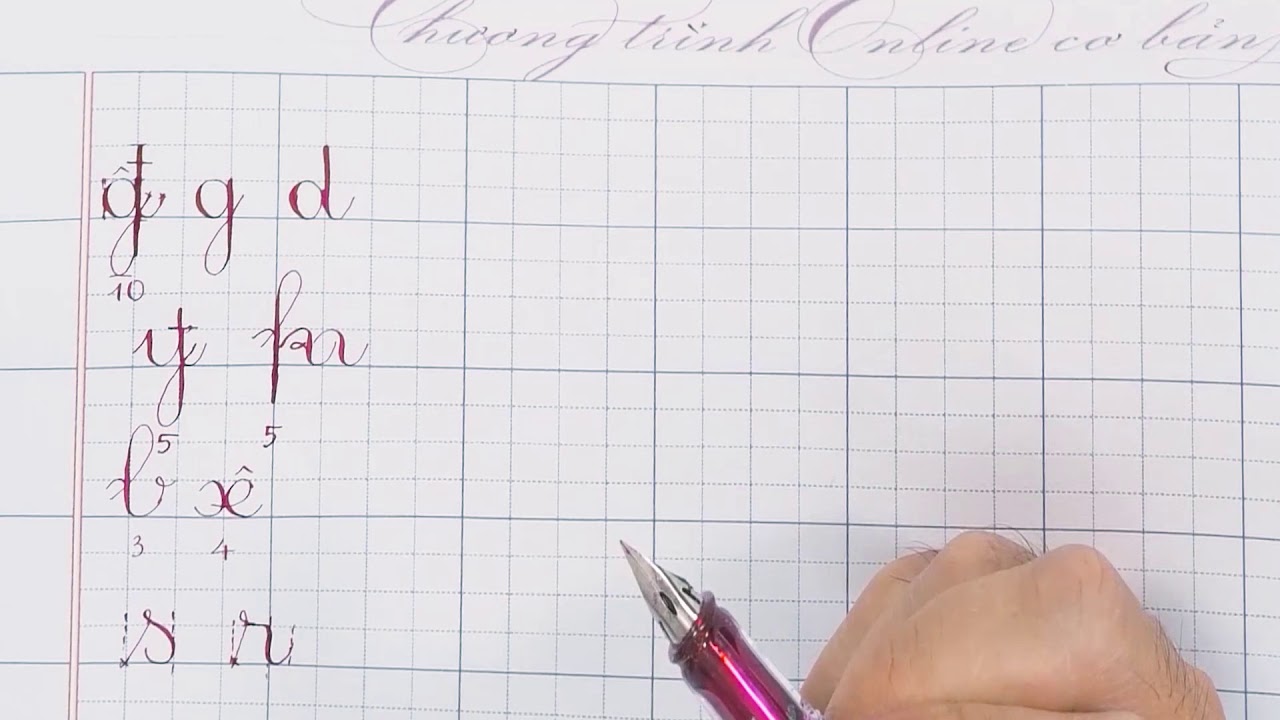 Chương trình Online cơ bản
g d
10
5 5
b xê
3 4
s r